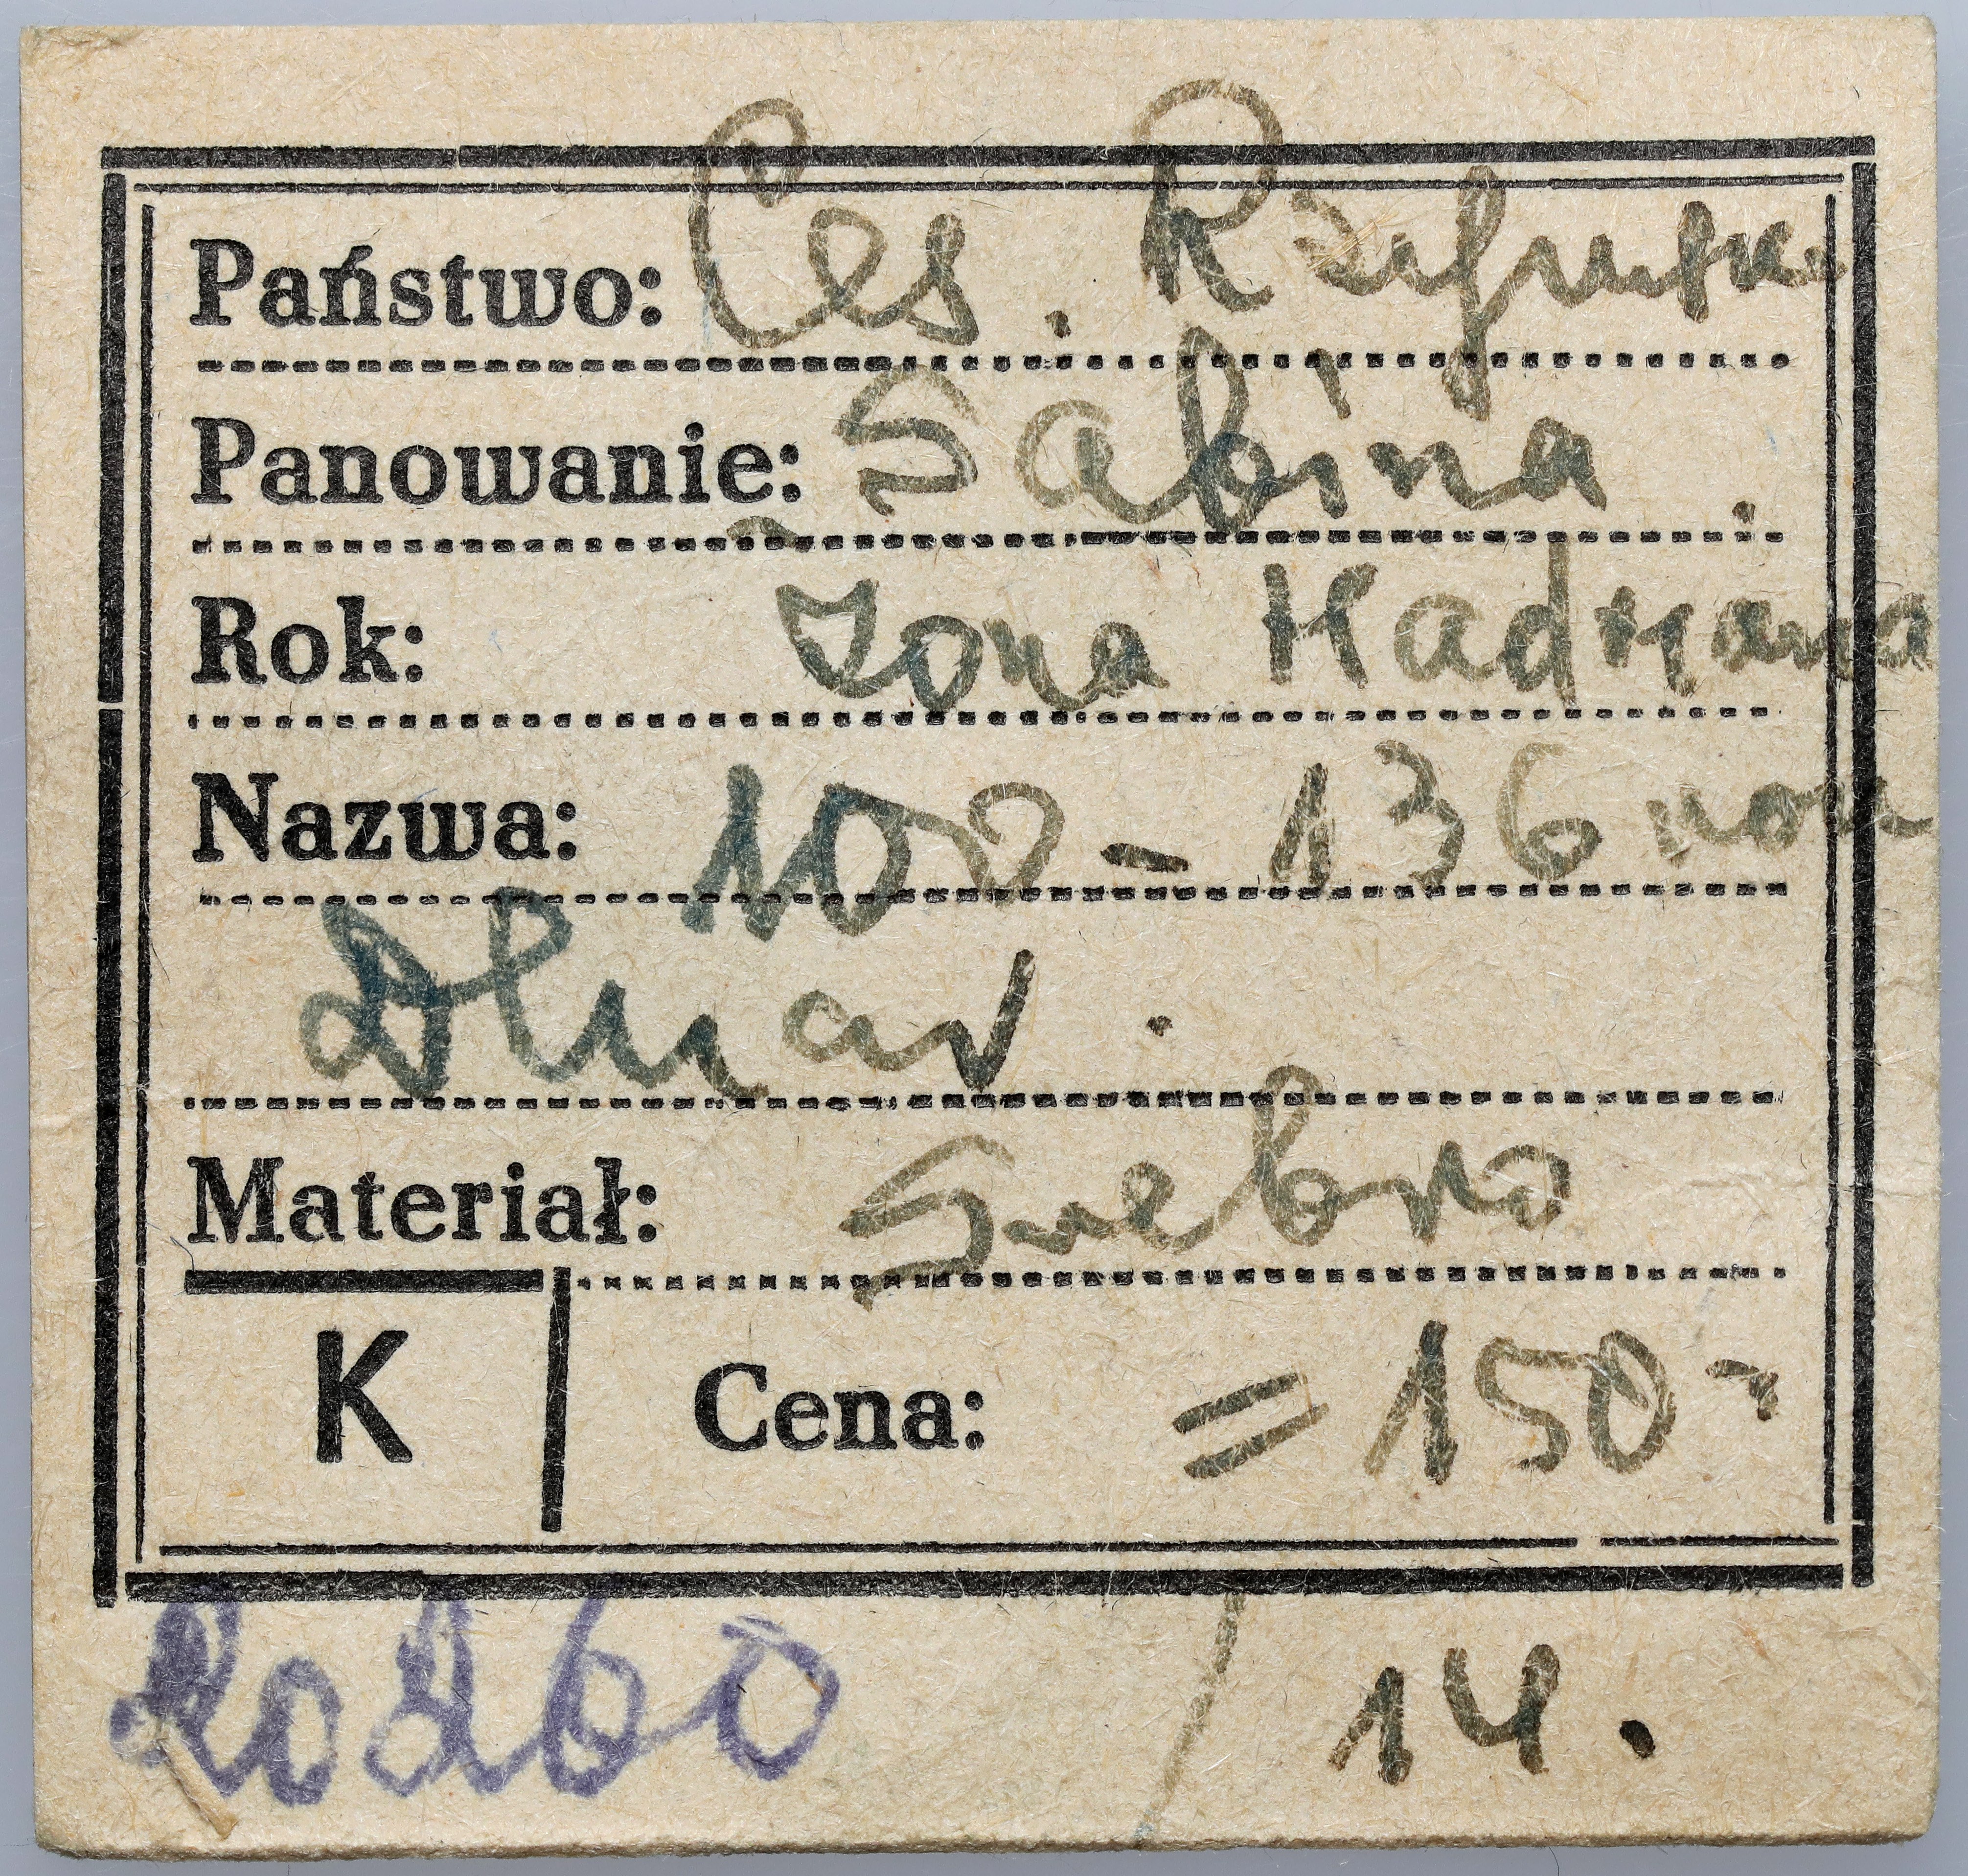 Państwo: Ces. Rzymsk.
Panowanie: Sabina
Rok: Żona Hadriana
Nazwa: 100 - 136 roku
Denar.
Materiał: Srebro
K Cena: = 150 -
14.